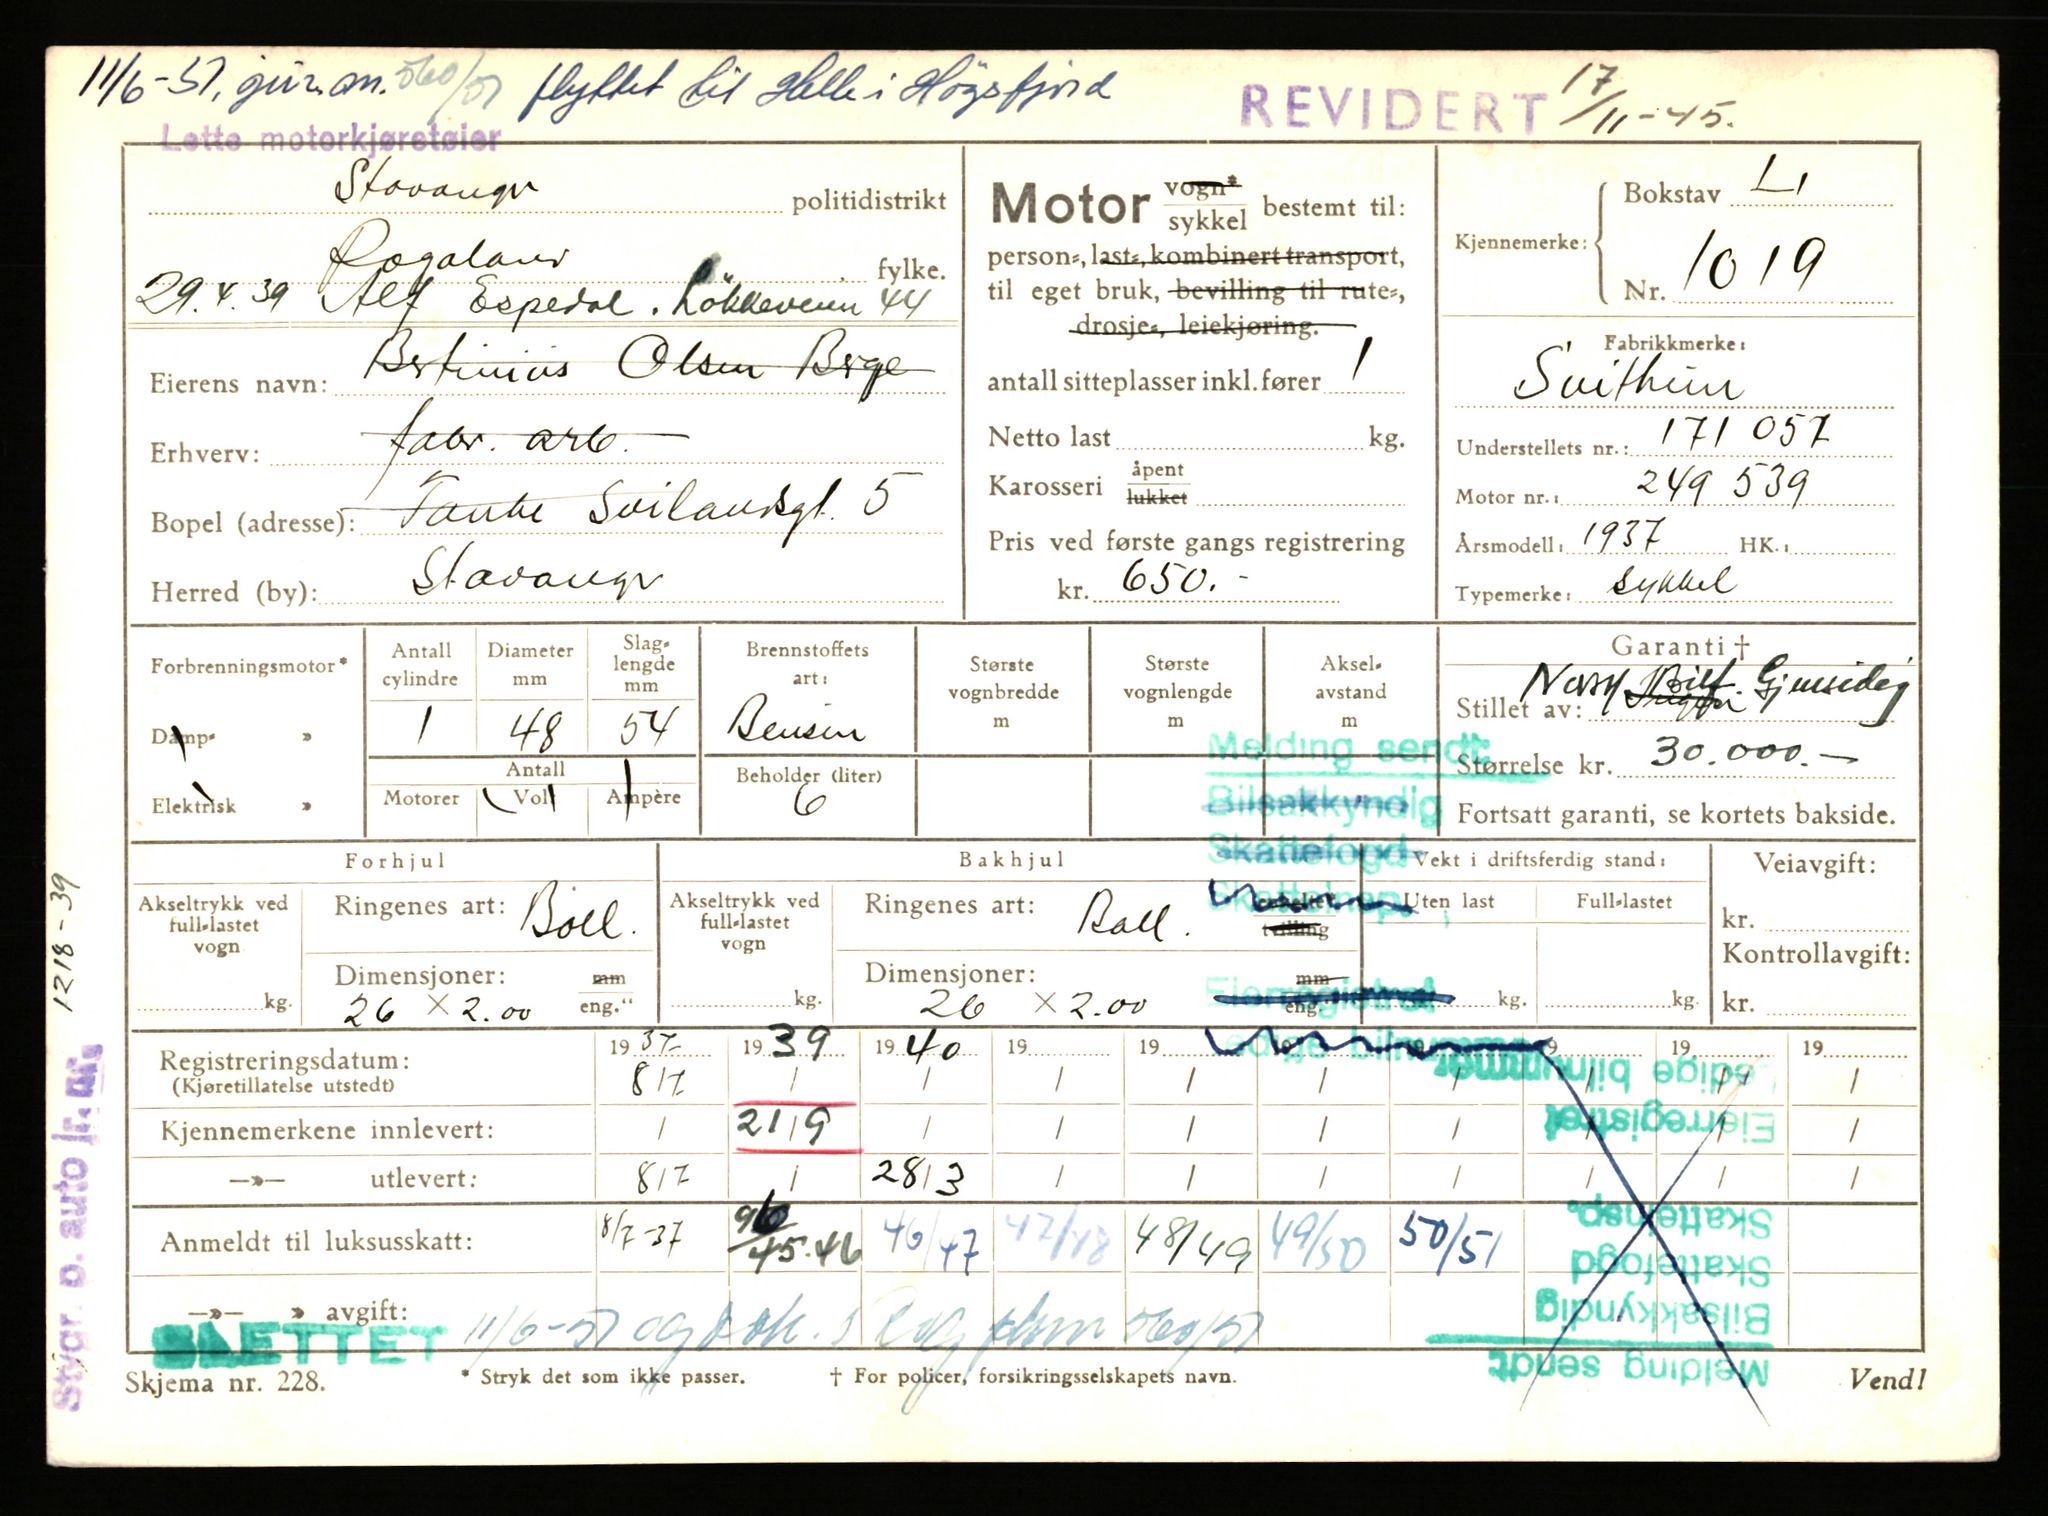 11/6-51, jnr. m. 560/51 flyttet til Helle i Högsfjord
REVIDERT 17/11-45.
Lette motorkjøretøier
Stavanger politidistrikt
Rogaland fylke.
29.4.39 Alf Espedal. Lökkeveien 44
Eierens navn: Bertinius Olsen Berge
Erhverv: fabr. arb.
Bopel (adresse): Tante Svilandsgt. 5
Herred (by): Stavanger
Motor vogn* sykkel bestemt til:
person-, last-, kombinert transport,
til eget bruk, bevilling til rute-,
drosje-, leiekjøring.
antall sitteplasser inkl. fører 1
Netto last kg.
Karosseri åpent lukket
Pris ved første gangs registrering
kr. 650.-
Kjennemerke: Bokstav L
Nr. 1019
Fabrikkmerke:
Svithun
Understellets nr.: 171 057
Motor nr.: 249 539
Årsmodell: 1937 HK.:
Typemerke: sykkel
Forbrenningsmotor*
Damp- »
Elektrisk »
Antall cylindre
1
Diameter mm
48
Slag-lengde mm
54
Antall
Motorer Volt Ampère
Brennstoffets art:
Bensin
Beholder (liter)
6
Største vognbredde m
Største vognlengde m
Aksel-avstand m
Garanti †
Stillet av: Norsk Bilf. Gjensidig
Størrelse kr. 30.000.-
Fortsatt garanti, se kortets bakside.
Melding sendt
Bilsakkyndig
Skattefogd
Skatteinsp.
Eierregistret
Ledige bilnummer
Forhjul
Akseltrykk ved full-lastet vogn
kg.
Ringenes art: Ball.
Dimensjoner: mm
26 × 2.00 eng."
Bakhjul
Akseltrykk ved full-lastet vogn
kg.
Ringenes art: Ball. enkelter tvilling
Dimensjoner: mm
26 × 2.00 eng.
Vekt i driftsferdig stand:
Uten last Full-lastet
kg. kg.
Veiavgift:
kr.
Kontrollavgift:
kr.
Registreringsdatum: 1937 1939 1940 19 19 19 19 19 19 19
(Kjøretillatelse utstedt) 8/7 / / / / / / / / /
Kjennemerkene innlevert: / 21/9 / / / / / / / /
—»— utlevert: 8/7 / 28/3 / / / / / / /
Anmeldt til luksusskatt: 8/7-37 45.46 46/47 47/48 48/49 49/50 50/51
—»— » avgift:
SLETTET 11/6-51 560/51
Skjema nr. 228.
* Stryk det som ikke passer.
† For policer, forsikringsselskapets navn.
Vend!
Ledige bilnummer
Eierregistret
Skatteinsp.
Skattefogd
Bilsakkyndig
Melding sendt
1218-39
Stvgr. p. auto jr. nr.